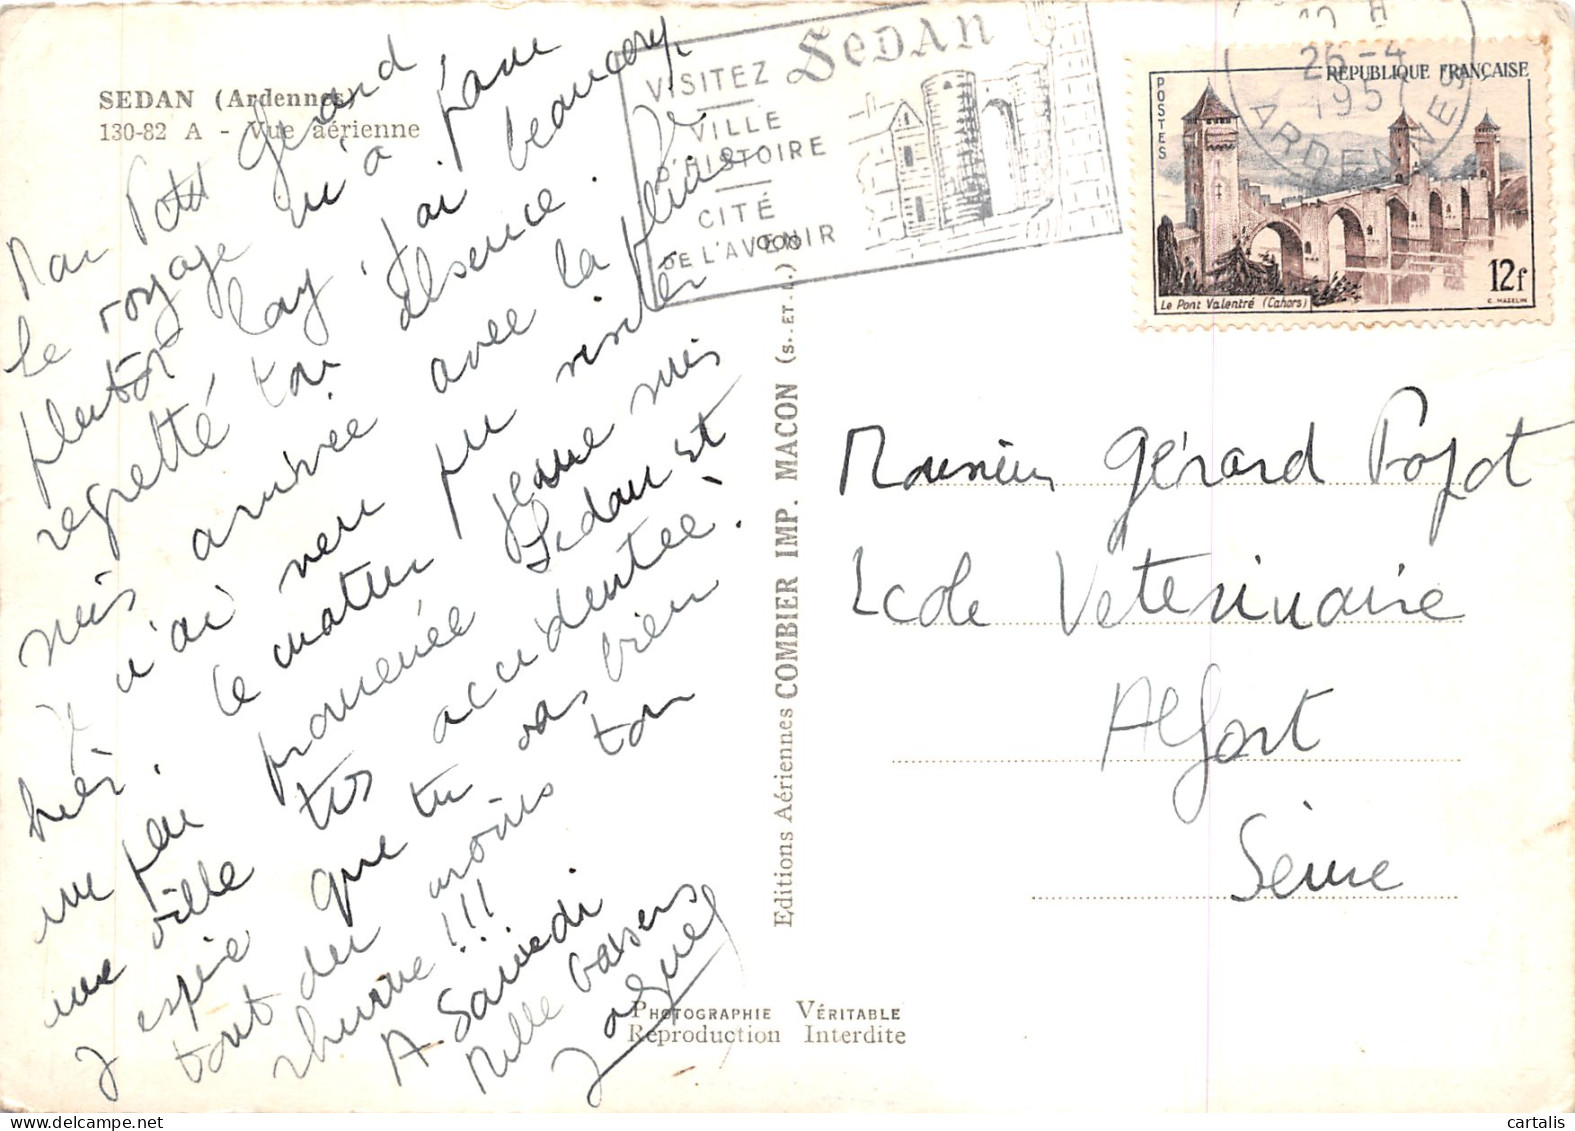 SEDAN (Ardennes)
130-82 A - Vue aérienne
Mon Petit Gérard
Le voyage qu'a
plutôt long j'ai beaucoup
regretté ton absence.
mais arrivée avec la pluie
je n'ai rien pu visiter
hier. le matin jeanne m'es
un peu promenée Sedan est
une ville très accidentée !
j espère que tu vas bien
tout du moins ton
rhume !!!
A Samedi
Mille baisers
VISITEZ SEDAN
VILLE
D'HISTOIRE
CITÉ
DE L'AVENIR
26-4
195
ARDENNES
POSTES
REPUBLIQUE FRANÇAISE
12f
Le Pont Valentré (Cahors)
C. MAZELIN
Editions Aériennes COMBIER IMP. MACON (S.-ET-L.)
Monsieur Gérard Pozot
Ecole Veterinaire
Alfort
Seine
PHOTOGRAPHIE VÉRITABLE
Reproduction Interdite
cartalis
delcampe.net